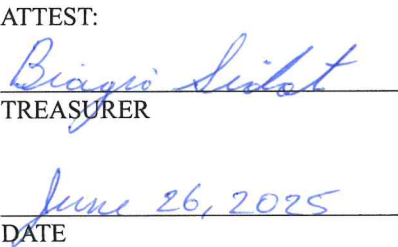 ATTEST:
Biagio
TREASURER
June 26, 2025
DATE